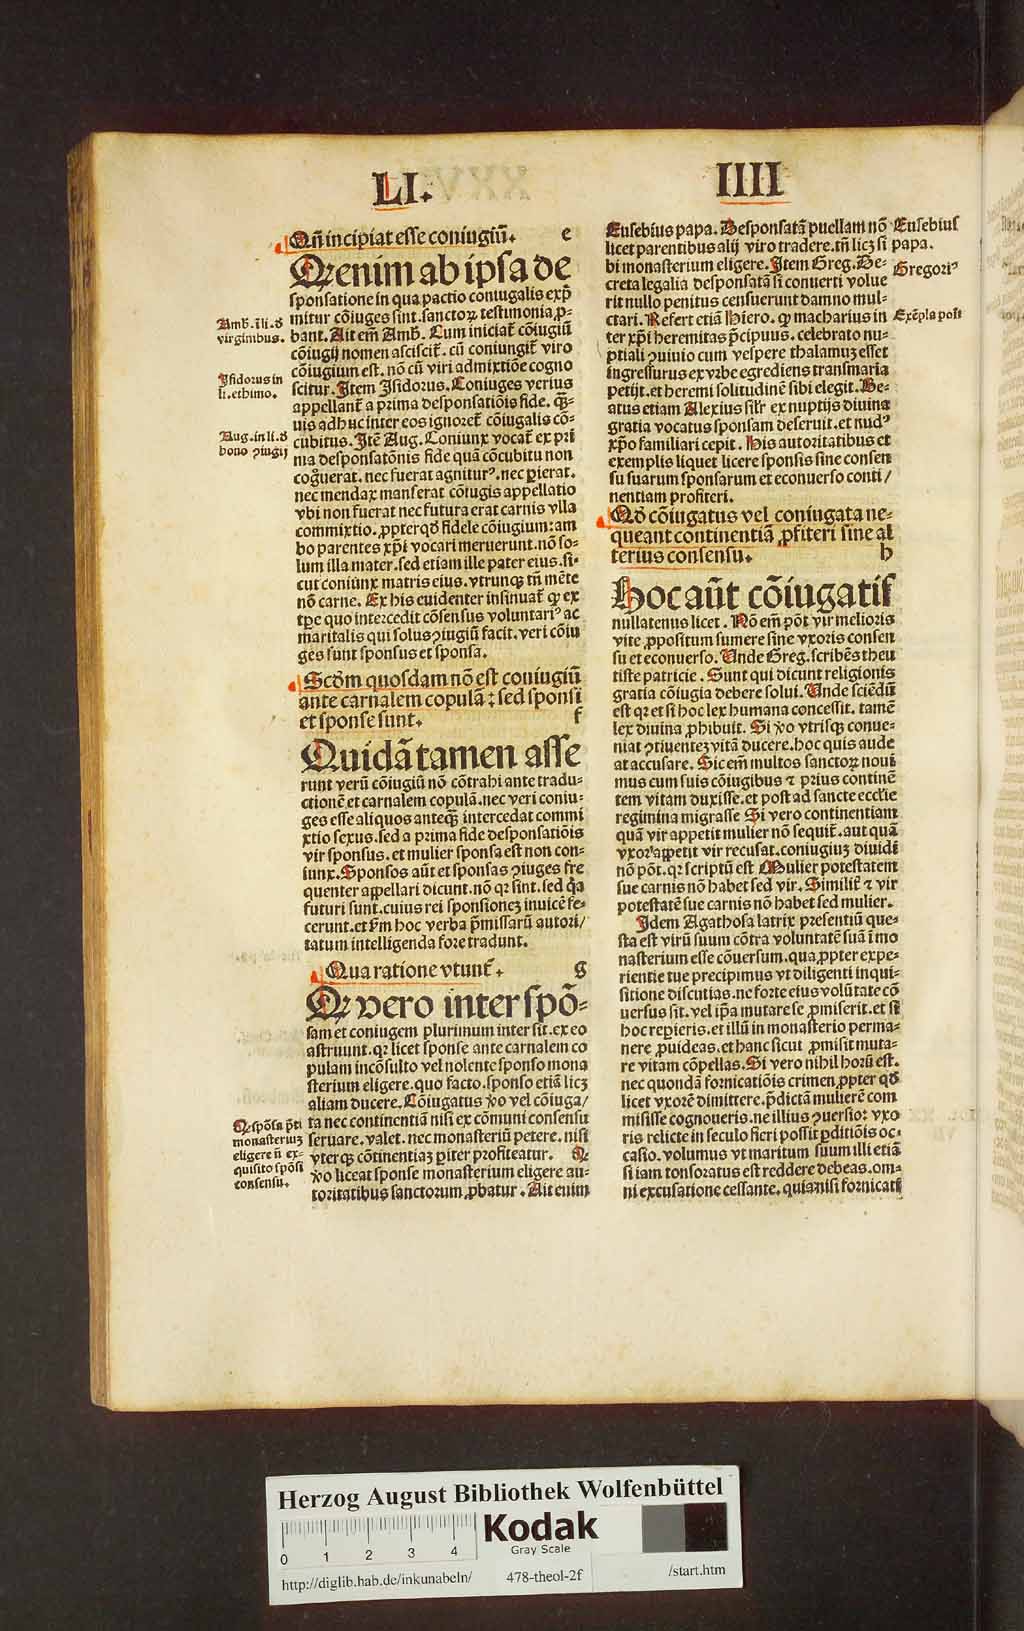 LI.
IIII
Qñ incipiat esse coniugiũ. e
Qꝛ enim ab ipsa de
sponsatione in qua pactio coniugalis exp̃
mitur cõiuges sint. sanctoꝝ testimonia ꝓ-
bant. Ait em̃ Amb̃. Cum iniciat̃ cõiugiũ
cõiugij nomen asciscit̃. cũ coniungit̃ viro
cõiugium est. nõ cũ viri admixtiõe cogno
scitur. Item Isidorus. Coniuges verius
appellant̃ a prima desponsatiõis fide. qᷓ-
uis adhuc inter eos ignoret̃ cõiugalis cõ-
cubitus. Itẽ Aug. Coniunx vocat̃ ex pri
ma desponsatõnis fide quã cõcubitu non
cog̃uerat. nec fuerat agnitur⁹. nec ꝑierat.
nec mendax manserat cõiugis appellatio
vbi non fuerat nec futura erat carnis vlla
commixtio. ꝓpterqď fidele cõiugium: am
bo parentes xp̃i vocari meruerunt. nõ so-
lum illa mater. sed etiam ille pater eius. si-
cut coniunx matris eius. vtrunqꝫ tñ mẽte
nõ carne. Ex his euidenter insinuat̃ ꝙ ex
tꝑe quo intercedit cõsensus voluntari⁹ ac
maritalis qui solus ꝯiugiũ facit. veri cõiu
ges sunt sponsus et sponsa.
Scďm quosdam nõ est coniugiũ
ante carnalem copulã: sed sponsi
et sponse sunt. f
Quidã tamen asse
runt verũ cõiugiũ nõ cõtrahi ante tradu-
ctionẽ et carnalem copulã. nec veri coniu-
ges esse aliquos anteqᷓ intercedat commi
xtio sexus. sed a prima fide desponsatiõis
vir sponsus. et mulier sponsa est non con-
iunx. Sponsos aũt et sponsas ꝯiuges fre
quenter appellari dicunt. nõ qꝛ sint. sed q̃a
futuri sunt. cuius rei sponsionez inuicẽ fe-
cerunt. et ẜm hoc verba p̃missarũ autori/
tatum intelligenda fore tradunt.
Qua ratione vtunt̃. g
Qꝛ vero inter spõ-
sam et coniugem plurimum inter sit. ex eo
astruunt. qꝛ licet sponse ante carnalem co
pulam incõsulto vel nolente sponso mona
sterium eligere. quo facto. sponso etiã licꝫ
aliam ducere. Cõiugatus ꝟo vel cõiuga/
ta nec continentiã nisi ex cõmuni consensu
seruare. valet. nec monasteriũ petere. nisi
vterqꝫ cõtinentiaꝫ ꝑiter profiteatur. Qꝛ
ꝟo liceat sponse monasterium eligere au-
toritatibus sanctorum ꝓbatur. Ait enim
Amb̃. ĩ li. ď
virginibus.
Isidorus in
li. ethimo.
Aug. in li. ď
bono ꝯiugij
Qꝛ spõsa p̃t
monasteriuꝫ
eligere ñ ex-
quisito spõsi
consensu.
Eusebius papa. Desponsatã puellam nõ
licet parentibus alij viro tradere. tñ licꝫ si
bi monasterium eligere. Item Greg. De-
creta legalia desponsatã si conuerti volue
rit nullo penitus censuerunt damno mul-
ctari. Refert etiã Hiero. ꝙ macharius in
ter xp̃i heremitas p̃cipuus. celebrato nu-
ptiali ꝯuiuio cum vespere thalamuꝫ esset
ingressurus ex vrbe egrediens transmaria
petijt. et heremi solitudinẽ sibi elegit. Be-
atus etiam Alexius sil̃r ex nuptijs diuina
gratia vocatus sponsam deseruit. et nud⁹
xp̃o familiari cepit. His autoritatibus et
exemplis liquet licere sponsis sine consen
su suarum sponsarum et econuerso conti/
nentiam profiteri.
Qď cõiugatus vel coniugata ne-
queant continentiã ꝓfiteri sine al
terius consensu. h
Hoc aũt cõiugatis
nullatenus licet. Nõ em̃ põt vir melioris
vite ꝓpositum sumere sine vxoris consen
su et econuerso. Unde Greg. scribẽs theu
tiste patricie. Sunt qui dicunt religionis
gratia cõiugia debere solui. Unde sciẽdũ
est qꝛ et si hoc lex humana concessit. tamẽ
lex diuina ꝓhibuit. Si ꝟo vtrisqꝫ conue-
niat ꝯtinenteꝫ vitã ducere. hoc quis aude
at accusare. Sic em̃ multos sanctoꝝ noui
mus cum suis cõiugibus ⁊ prius continẽ
tem vitam duxisse. et post ad sancte eccl̃ie
regimina migrasse Si vero continentiam
quã vir appetit mulier nõ sequit̃. aut quã
vxor appetit vir recusat. coniugiuꝫ diuidi
nõ põt. qꝛ scriptũ est Mulier potestatem
sue carnis nõ habet sed vir. Similit̃ ⁊ vir
potestatẽ sue carnis nõ habet sed mulier.
Idem Agathosa latrix presentiũ que-
sta est virũ suum cõtra voluntatẽ suã ĩ mo
nasterium esse cõuersum. qua ꝓpter expe-
rientie tue precipimus vt diligenti inqui-
sitione discutias. ne forte eius volũtate cõ
uersus sit. vel ip̃a mutare se ꝓmiserit. et si
hoc reꝑieris. et illũ in monasterio perma-
nere ꝓuideas. et hanc sicut ꝓmisit muta-
re vitam cõpellas. Si vero nihil horũ est.
nec quondã fornicatiõis crimen ꝓpter qď
licet vxorẽ dimittere. p̃dictã mulierẽ com
misisse cognoueris. ne illius ꝯuersio: vxo
ris relicte in seculo fieri possit ꝑditiõis oc-
casio. volumus vt maritum suum illi etiã
si iam tonsoratus est reddere debeas. om-
ni excusatione cessante. quia nisi fornicati
Eusebius
papa.
Gregori⁹
Exẽpla posit
Herzog August Bibliothek Wolfenbüttel
Kodak
Gray Scale
0 1 2 3 4
http://diglib.hab.de/inkunabeln/ 478-theol-2f /start.htm